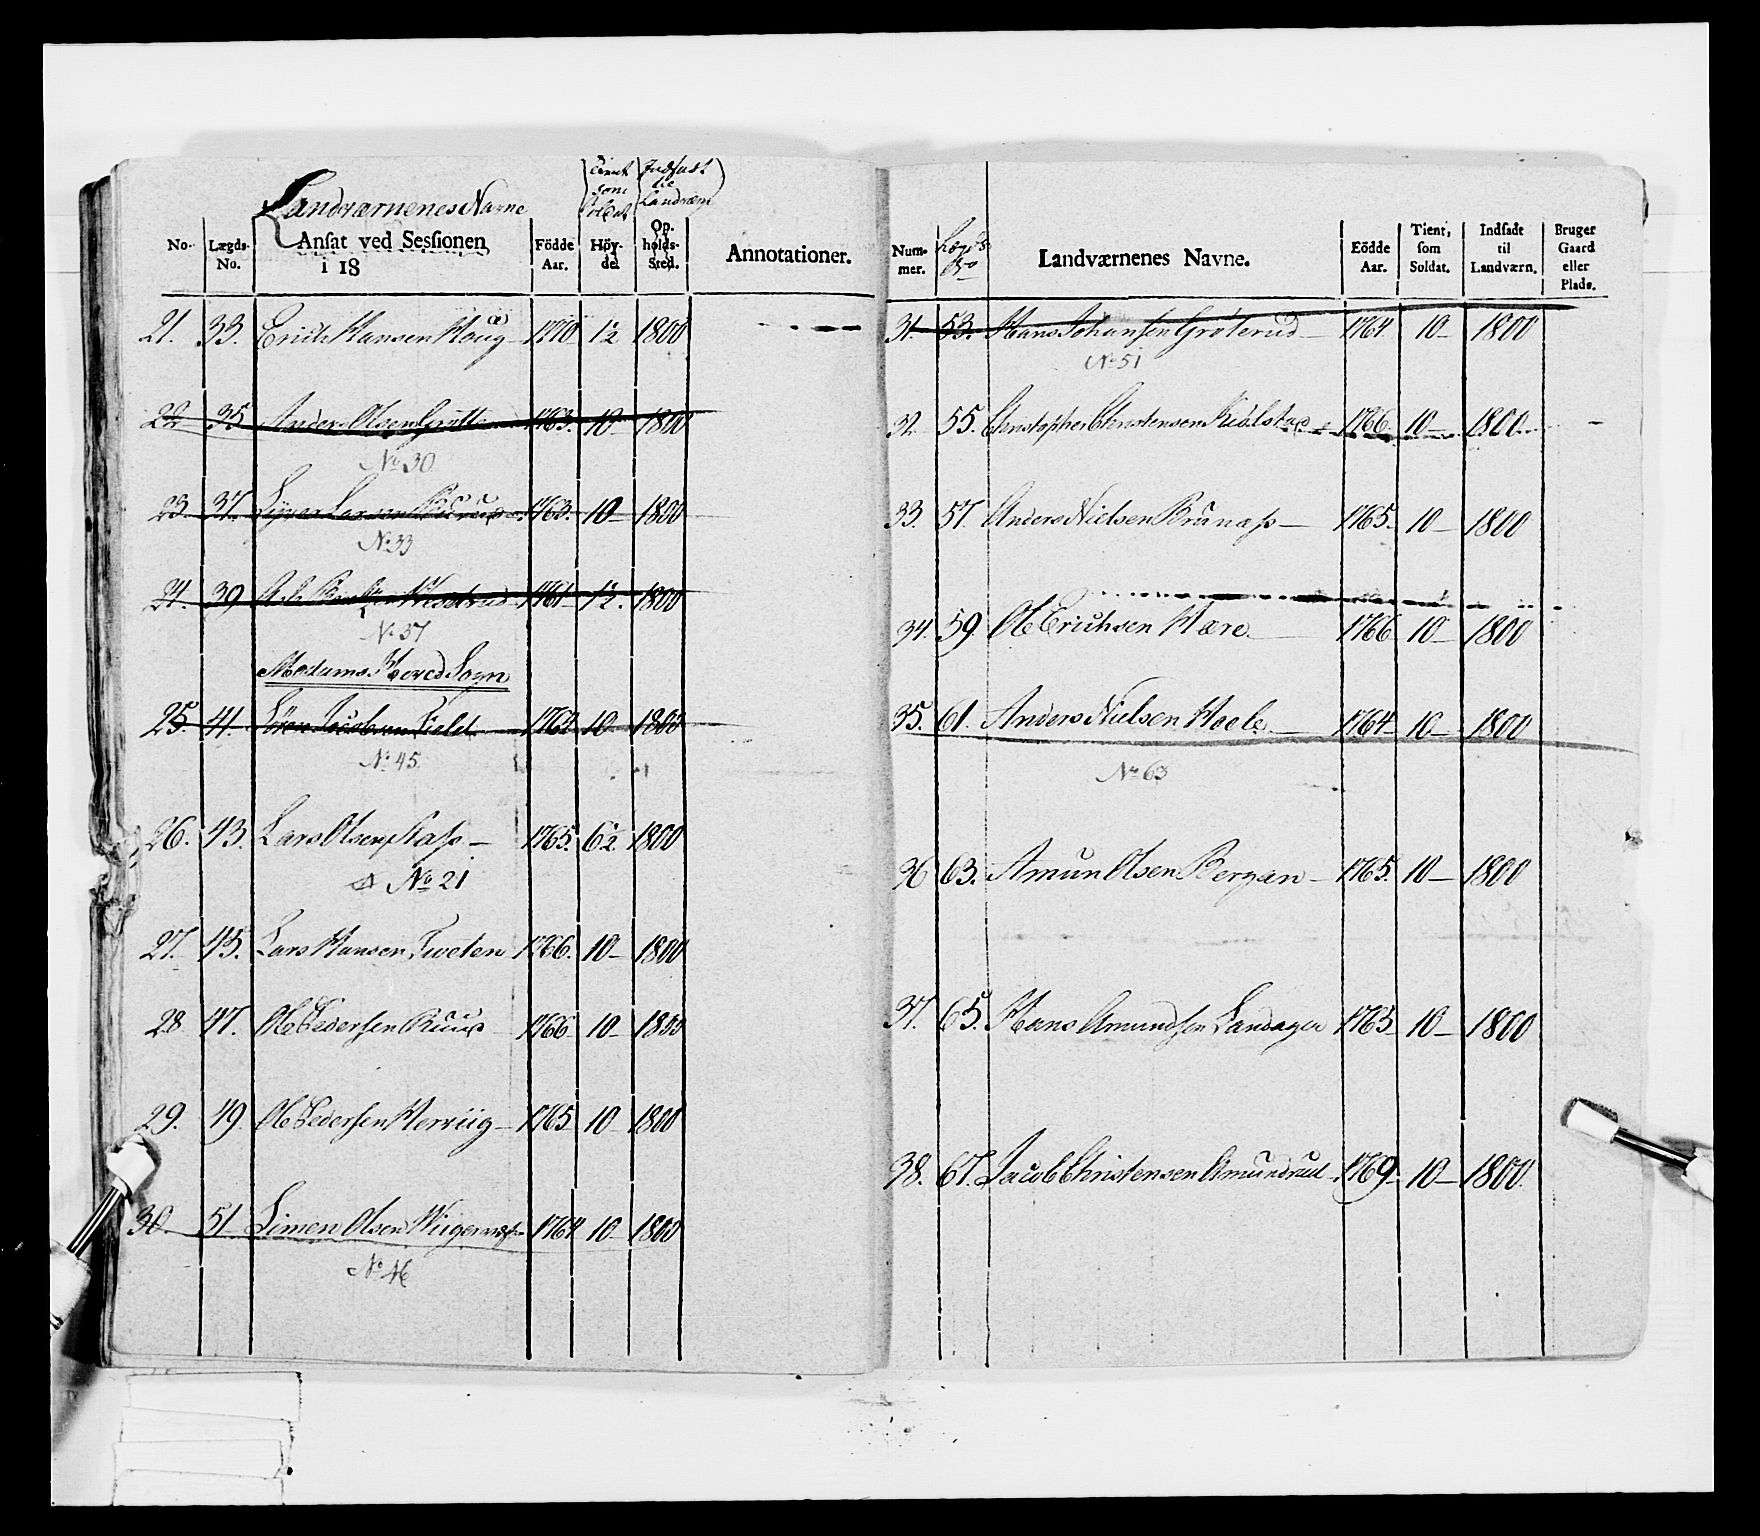 Landværnenes Navne
Tient som Soldat
Indsadt til Landværn
No. Lægds-No. Ansat ved Sessionen i 18 Födde Aar. Höyde. Opholds-Sted. Annotationer.
21. 33. Erich Hansen Houg 1770 1½ 1800
22 35 Anders Olsen 1763 10 1800
No 30
23. 37. Larsen 1763. 10 1800
No 33
24. 39 1761 1½. 1800
No 37
Modums Hoved Sogn
25. 41. Sören Jacobsen Field 1764 10 1800
No 45
26. 43. Lars Olsen 1765. 6½ 1800
No 21
27. 45. Lars Hansen Tveten 1766. 10 1800
28 47. Ole Pedersen Ruud 1766 10 1800
29. 49 Ole Pedersen 1765 10 1800
30. 51 Simen Olsen 1764 10 1800
No 46
Nummer. Lægds No Landværnenes Navne. Födde Aar. Tient, som Soldat. Indsadt til Landværn. Bruger Gaard eller Plads.
31. 53. Hans Johansen Gröterud 1764 10 1800
No 51
32. 55. Christopher Christensen 1766. 10 1800
33. 57. Anders Nielsen 1765. 10 1800
34. 59. Ole Erichsen Hære 1766 10 1800
35. 61. Anders Nielsen Hoele 1764 10 1800
No 63
36 63. Amun Olsen Bergan 1765. 10 1800
37. 65. Hans Amundsen 1763 10 1800
38. 67. Jacob Christensen Amundrud 1769. 10 1800